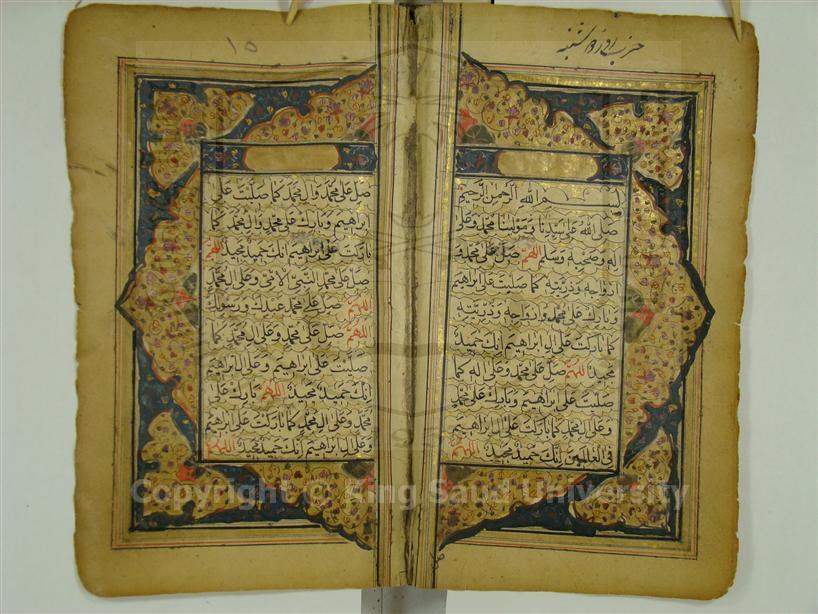 حزب روز دوشنبه
بسم الله الرحمن الرحيم
صلى الله على سيدنا ومولينا محمد وعلى
اله وصحبه وسلم اللهم صل على محمد و
ازواجه وذريته كما صليت على ابراهيم
وبارك على محمد وازواجه وذريته
كما باركت على ال ابراهيم انك حميد
مجيد اللهم صل على محمد وعلى اله كما
صليت على ابراهيم وبارك على محمد
وعلى ال محمد كما باركت على ال ابراهيم
في العالمين انك حميد مجيد اللهم
١٥
صل على محمد وال محمد كما صليت على
ابراهيم وبارك على محمد وال محمد كما
باركت على ابراهيم انك حميد مجيد اللهم
صل على محمد النبي الامي وعلى ال محمد
اللهم صل على محمد عبدك ورسولك
اللهم صل على محمد وعلى ال محمد كما
صليت على ابراهيم وعلى ال ابراهيم
انك حميد مجيد اللهم بارك على
محمد وعلى ال محمد كما باركت على ابراهيم
وعلى ال ابراهيم انك حميد مجيد اللهم
Copyright © King Saud University